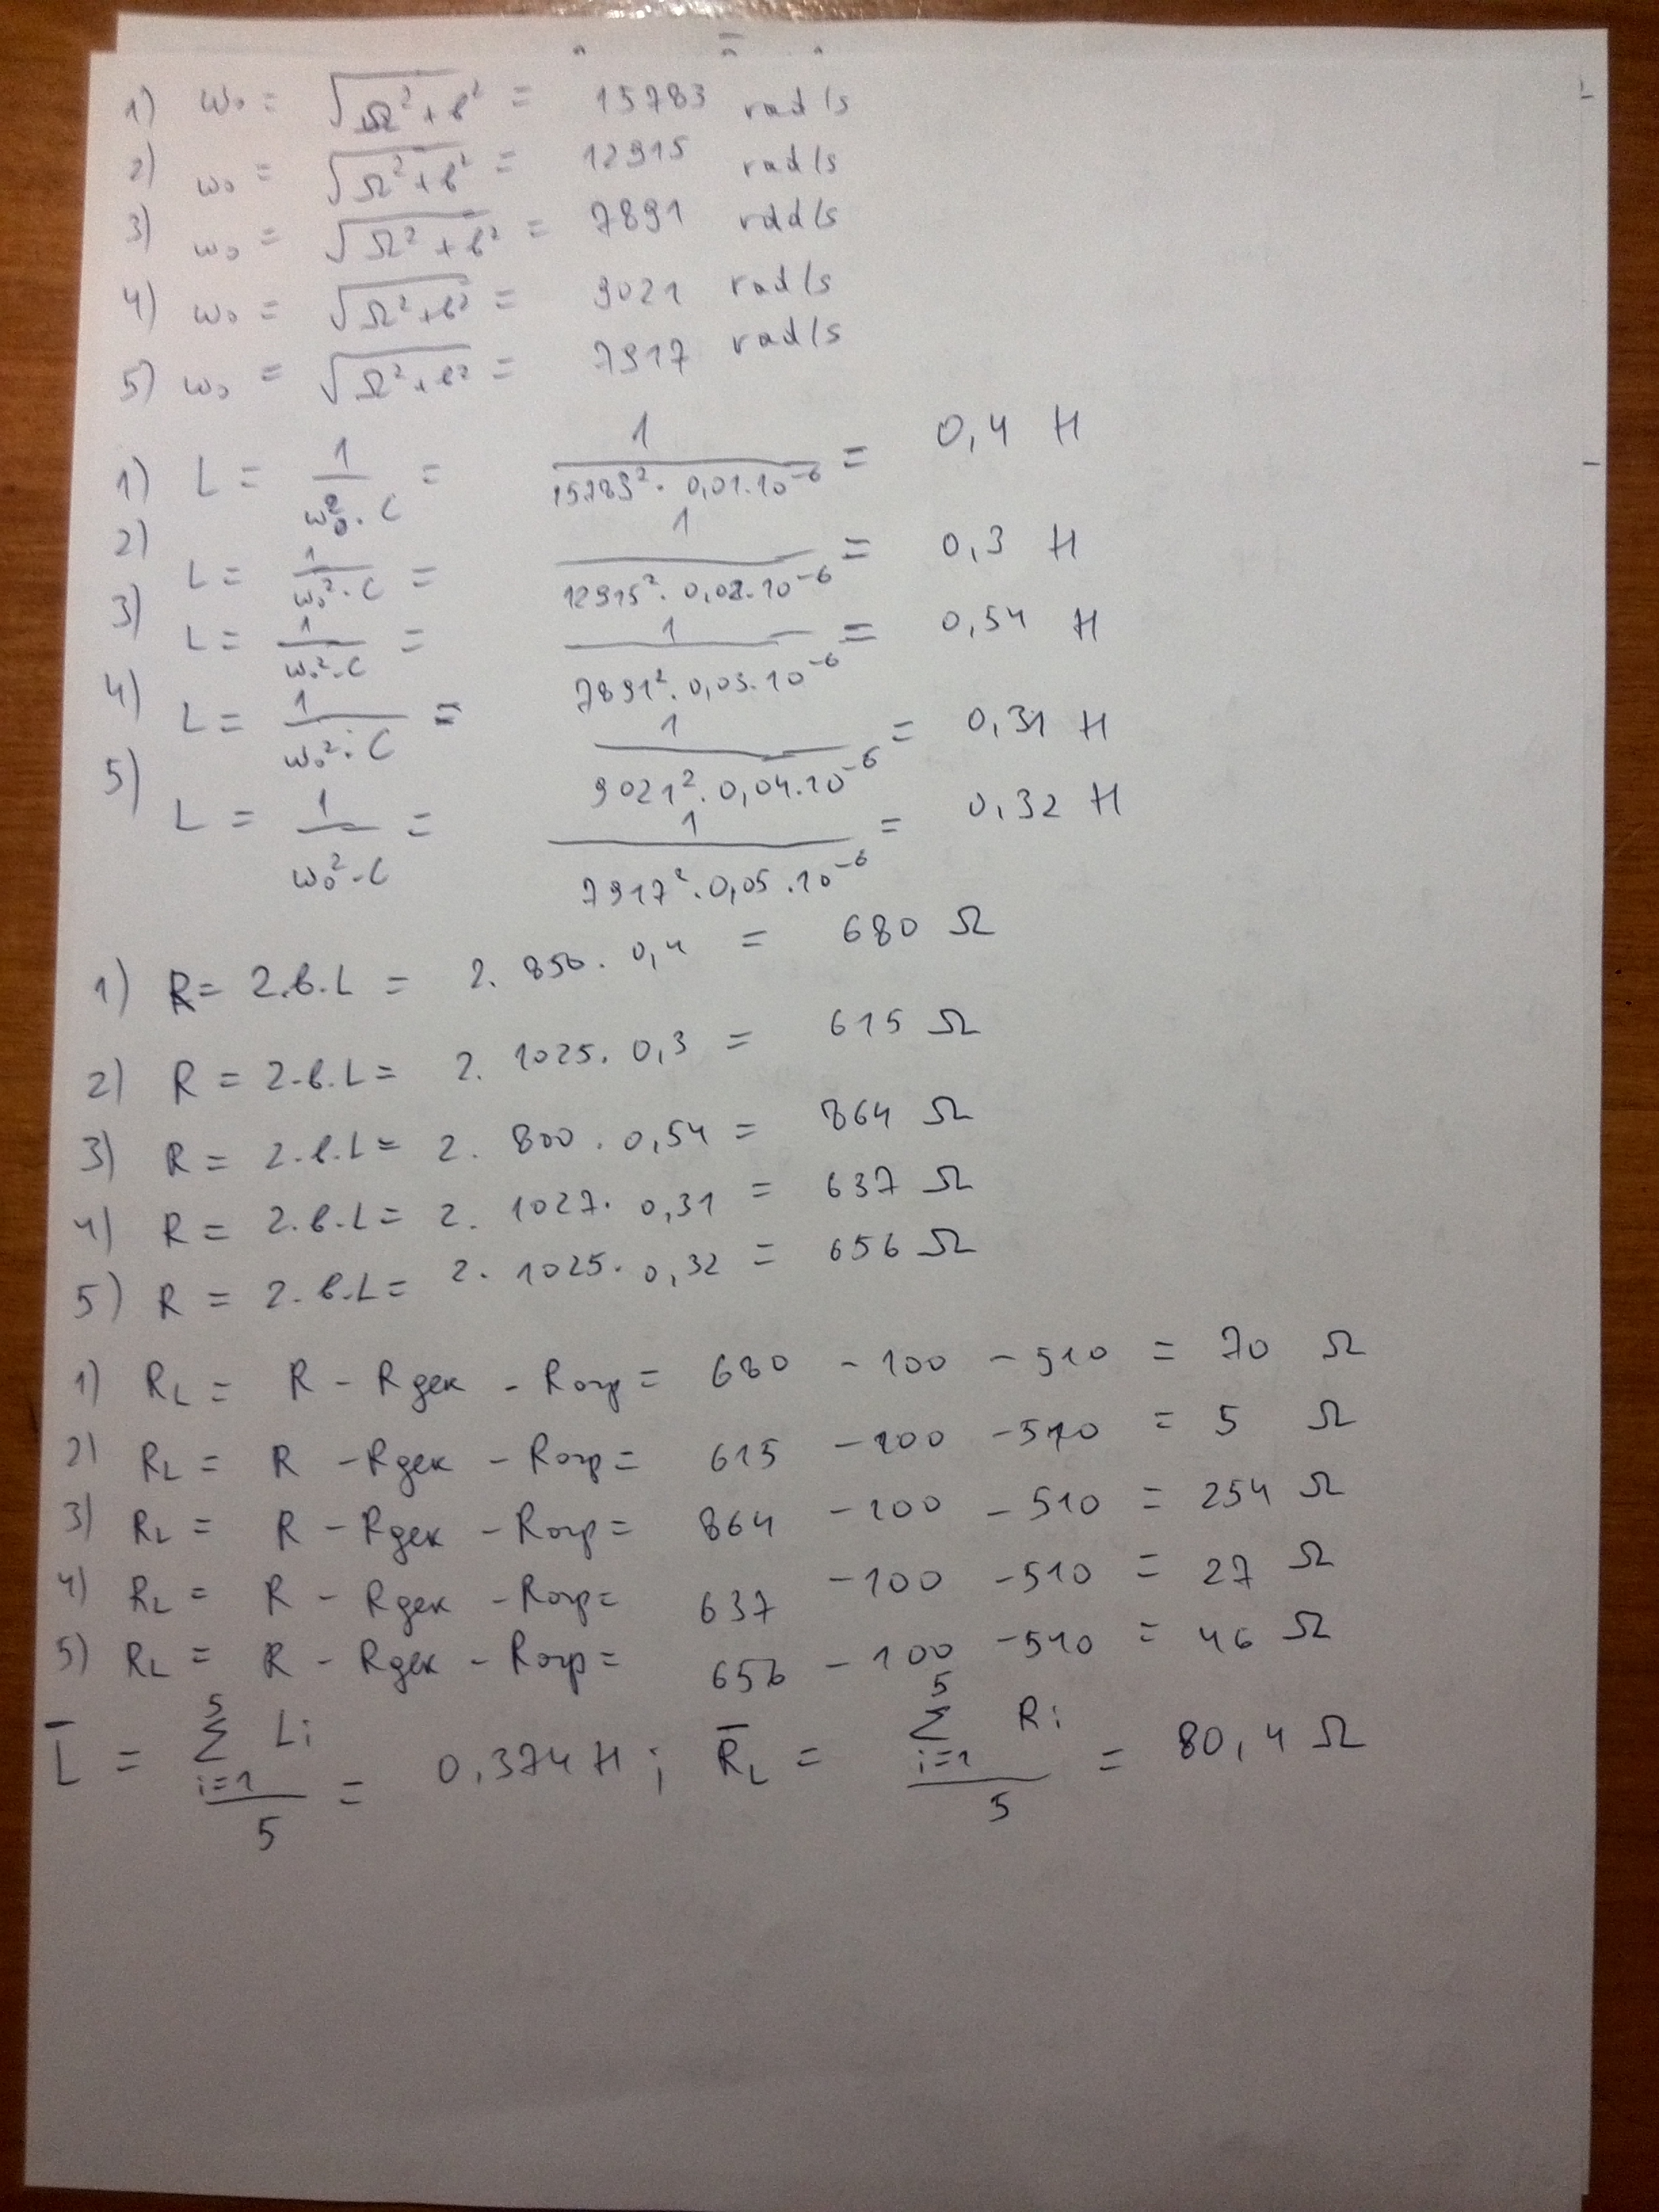 1) ω₀ = √(Ω²+b²) = 15783 rad/s
2) ω₀ = √(Ω²+b²) = 12915 rad/s
3) ω₀ = √(Ω²+b²) = 7891 rad/s
4) ω₀ = √(Ω²+b²) = 9021 rad/s
5) ω₀ = √(Ω²+b²) = 7917 rad/s
1) L = 1/(ω₀²·C) = 1/(15783²·0,01·10⁻⁶) = 0,4 H
2) L = 1/(ω₀²·C) = 1/(12915²·0,02·10⁻⁶) = 0,3 H
3) L = 1/(ω₀²·C) = 1/(7891²·0,03·10⁻⁶) = 0,54 H
4) L = 1/(ω₀²·C) = 1/(9021²·0,04·10⁻⁶) = 0,31 H
5) L = 1/(ω₀²·C) = 1/(7917²·0,05·10⁻⁶) = 0,32 H
1) R = 2.b.L = 2. 850. 0,4 = 680 Ω
2) R = 2.b.L = 2. 1025. 0,3 = 615 Ω
3) R = 2.b.L = 2. 800. 0,54 = 864 Ω
4) R = 2.b.L = 2. 1027. 0,31 = 637 Ω
5) R = 2.b.L = 2. 1025. 0,32 = 656 Ω
1) R_L = R - Rдек - Rогр = 680 - 100 - 510 = 70 Ω
2) R_L = R - Rдек - Rогр = 615 - 100 - 510 = 5 Ω
3) R_L = R - Rдек - Rогр = 864 - 100 - 510 = 254 Ω
4) R_L = R - Rдек - Rогр = 637 - 100 - 510 = 27 Ω
5) R_L = R - Rдек - Rогр = 656 - 100 - 510 = 46 Ω
L̄ = (5 Σ i=1 Li)/5 = 0,374 H ; R̄_L = (5 Σ i=1 Ri)/5 = 80,4 Ω